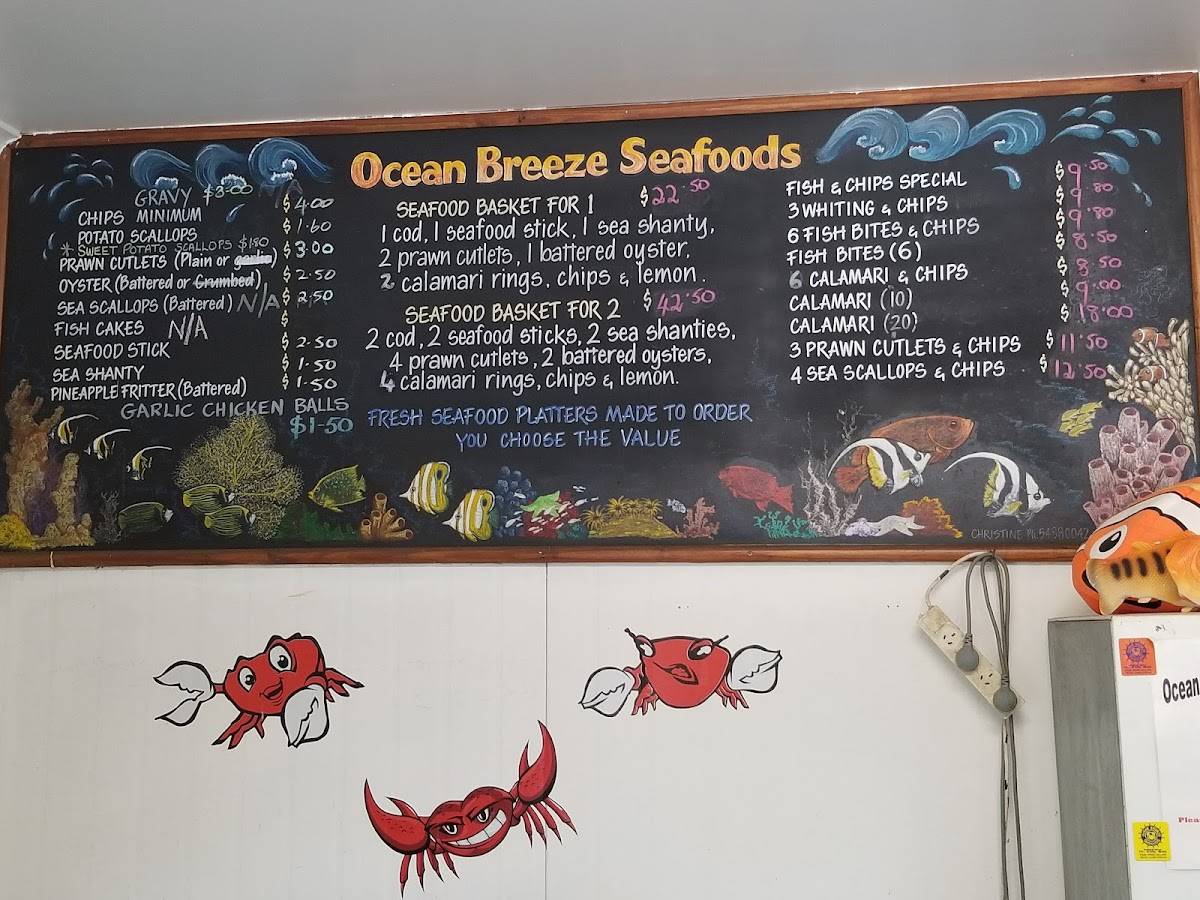 Ocean Breeze Seafoods
GRAVY $3.00 N/A
CHIPS MINIMUM $4.00
POTATO SCALLOPS $1.60
* SWEET POTATO SCALLOPS $1.80
PRAWN CUTLETS (Plain or garlic) $3.00
OYSTER (Battered or Crumbed) $2.50
SEA SCALLOPS (Battered) N/A $2.50
FISH CAKES N/A $
SEAFOOD STICK $2.50
SEA SHANTY $1.50
PINEAPPLE FRITTER (Battered) $1.50
GARLIC CHICKEN BALLS
$1-50
SEAFOOD BASKET FOR 1 $22.50
1 cod, 1 seafood stick, 1 sea shanty,
2 prawn cutlets, 1 battered oyster,
2 calamari rings, chips & lemon.
SEAFOOD BASKET FOR 2 $42.50
2 cod, 2 seafood sticks, 2 sea shanties,
4 prawn cutlets, 2 battered oysters,
4 calamari rings, chips & lemon.
FRESH SEAFOOD PLATTERS MADE TO ORDER
YOU CHOOSE THE VALUE
FISH & CHIPS SPECIAL $9.50
3 WHITING & CHIPS $9.80
6 FISH BITES & CHIPS $9.80
FISH BITES (6) $8.50
6 CALAMARI & CHIPS $8.50
CALAMARI (10) $9.00
CALAMARI (20) $18.00
3 PRAWN CUTLETS & CHIPS $11.50
4 SEA SCALLOPS & CHIPS $12.50
CHRISTINE Ph. 54580042
Ocean
Plea